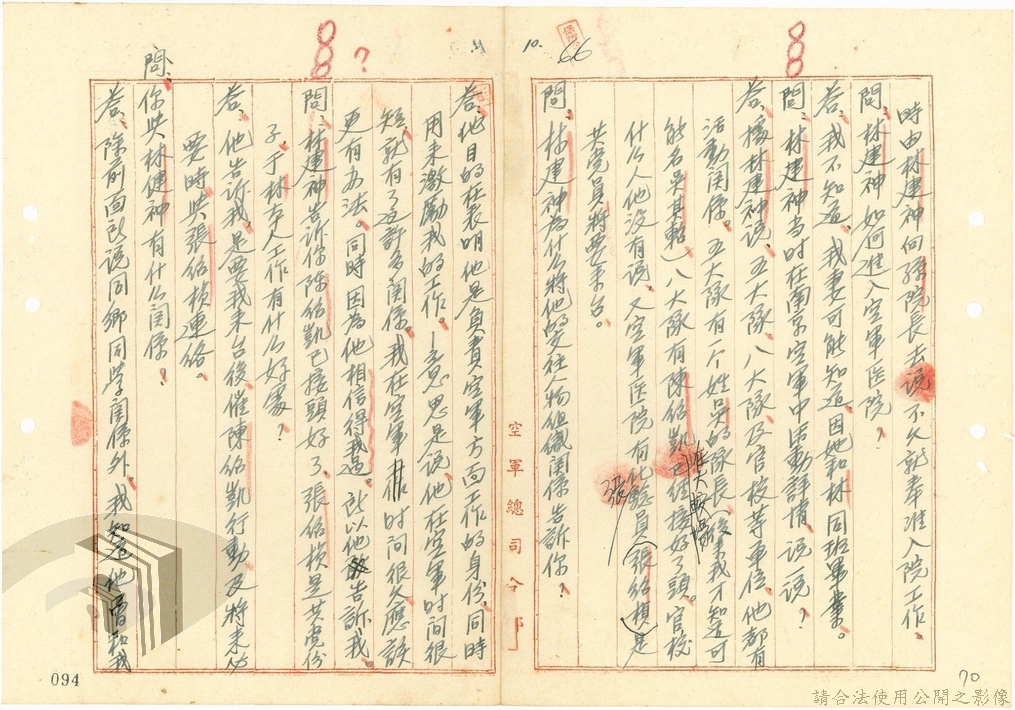 時由林建神向孫院長去說不久就奉准入院工作。
問、林建神如何進入空軍医院？
答、我不知道。我妻可能知道因她和林同班畢業。
問、林建神当时在南京空軍中策動詳情說一說？
答、據林建神說、五大隊、八大隊及官校等單位、他都有
活動関係。五大隊有一个姓吳的隊長（後來我才知道可
能名吳其軺）八大隊有陳紹凱已經接好了頭。官校
什么人他沒有說、又空軍医院有化驗員（張紹楨是
共党員將要來台。
張
問、林建神為什么將他的关社人物組織関係告訴你？
空軍總司令部
答、他目的在表明他是負責空軍方面工作的身份、同時
用來激勵我的工作。意思是說、他在空軍时间很
短、就有了這許多関係。我在空軍时间很久應該
更有办法。同時因為他相信得我過。所以他告訴我。
問、林建神告訴你陳紹凱已接頭好了、張紹楨是共党份
子、于林友人工作有什么好處？
答、他告訴我、是要我來台後、催陳紹凱行動、及將來必
要時與張紹楨連絡。
問、你與林健神有什么関係？
答、除前面所說同鄉同学関係外、我知道他曾和我
10.
11
66
888
888
?
70
094
請合法使用公開之影像